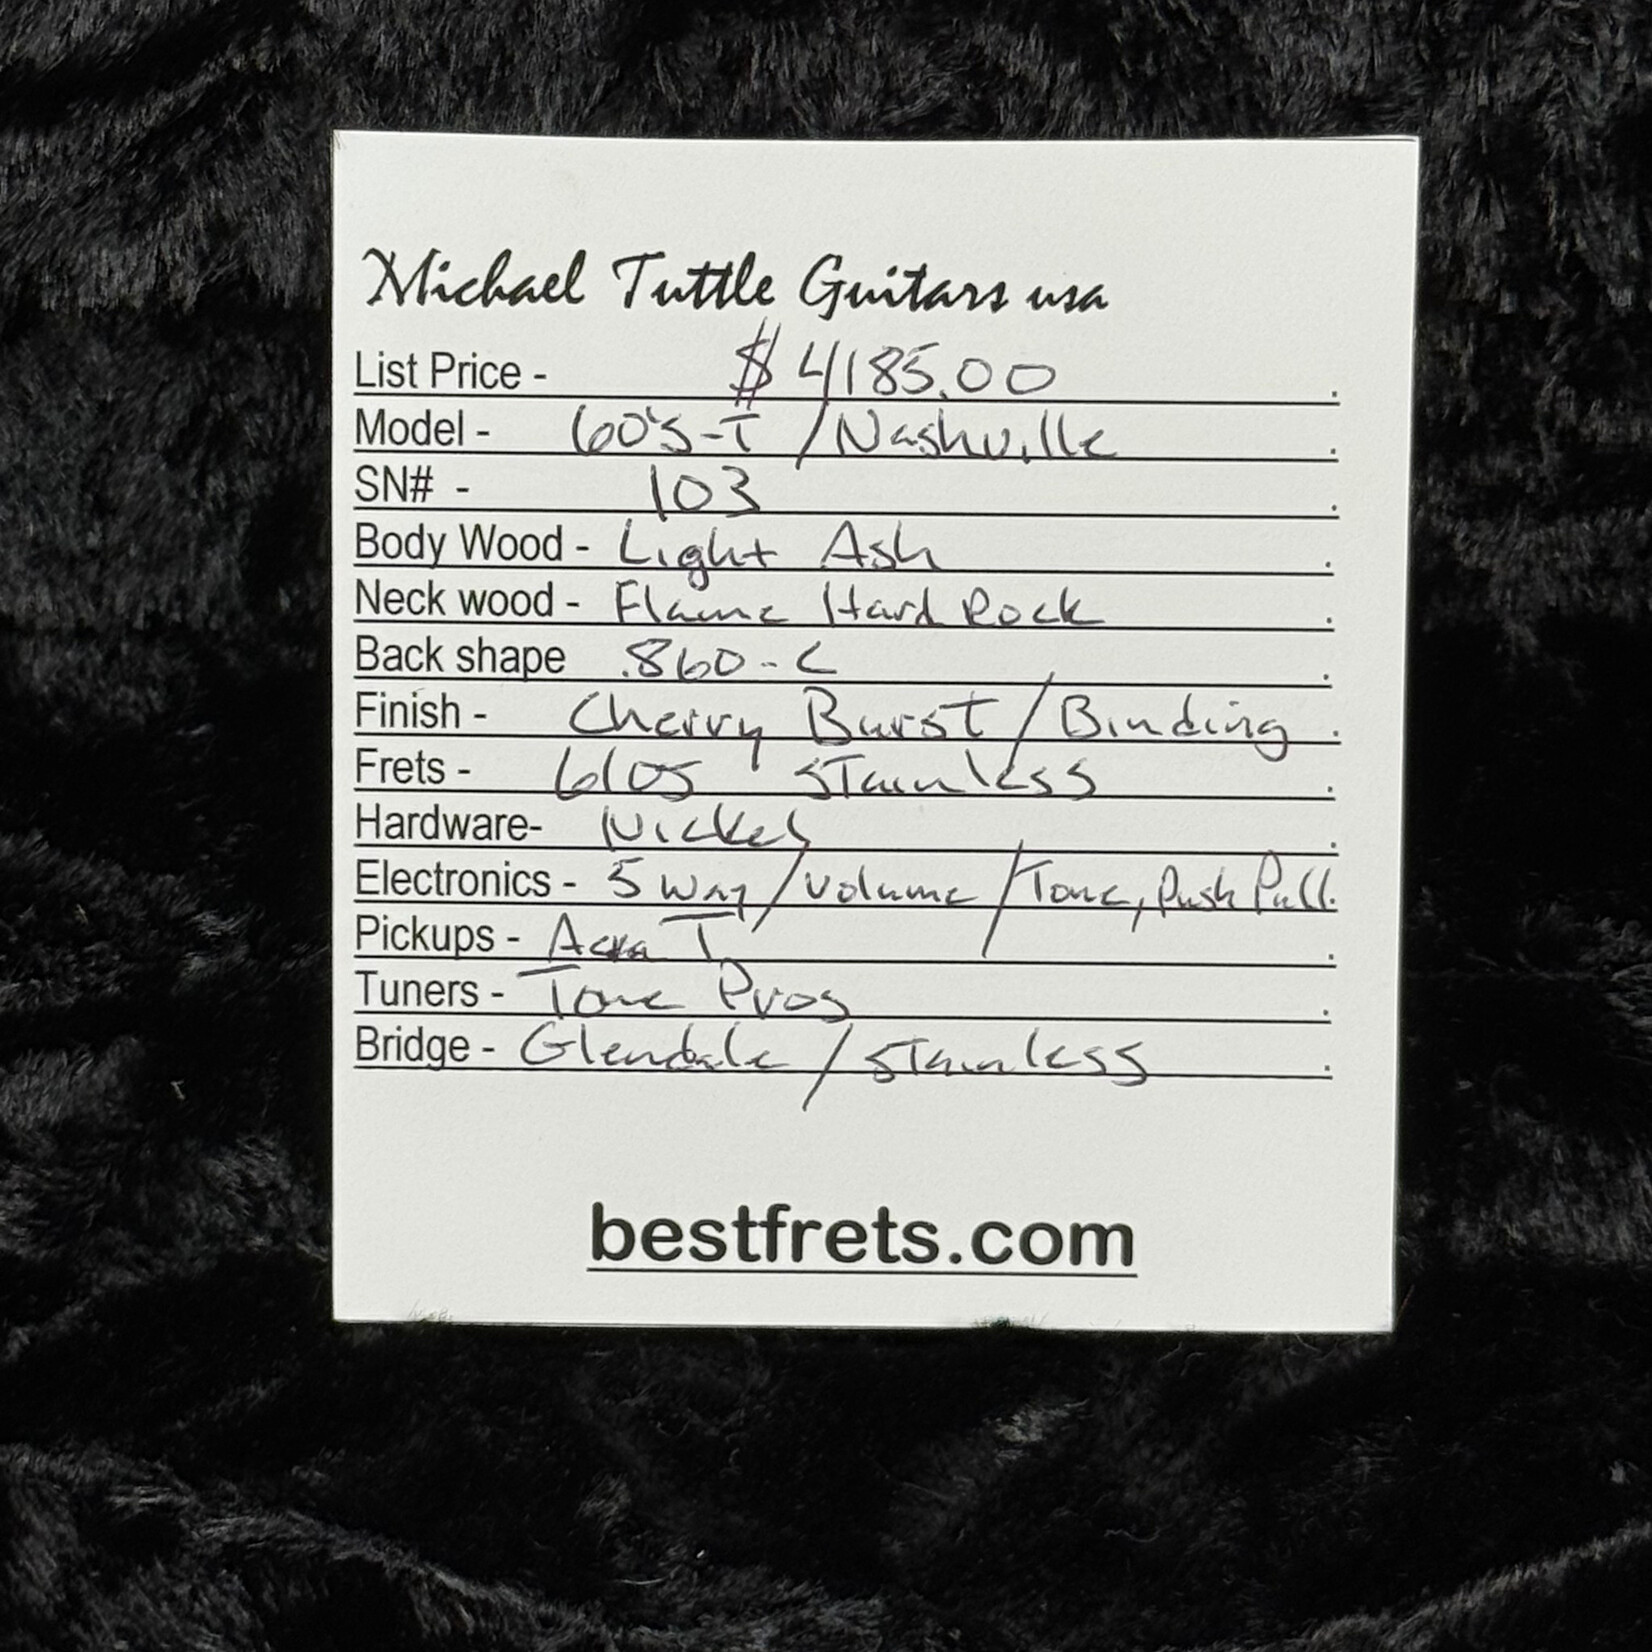 Michael Tuttle Guitars usa
List Price - $4185.00 .
Model - 60's-T / Nashville .
SN# - 103 .
Body Wood - Light Ash .
Neck wood - Flame Hard Rock .
Back shape .860-C .
Finish - Cherry Burst / Binding .
Frets - 6105 Stainless .
Hardware- Nickel .
Electronics - 5 way / volume / Tone, Push Pull .
Pickups - T .
Tuners - Tone Pros .
Bridge - Glendale / Stainless .
bestfrets.com